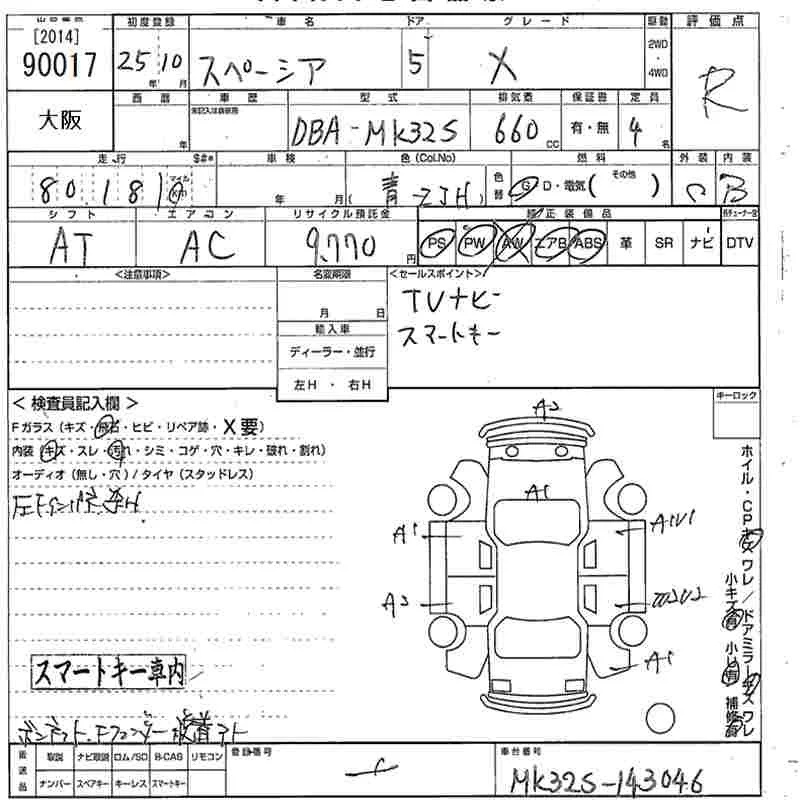 [2014]
90017
大阪
初度登録 車名 ドア グレード 駆動 評価点
25 10 スペーシア 5 X 2WD ・ 4WD R
年 月
西暦 車歴 型式 排気量 保証書 定員
年 DBA-MK32S 660 CC 有・無 4 名
走行 $#* 車検 色(Col.No) 燃料 外装 内装
80,181 マイル Km 年 月 ( 青-ZJH ) 色替 G・D・電気( その他 ) C B
シフト エアコン リサイクル預託金 純正装備品
AT AC 9,770 円 PS PW AW エアB ABS 革 SR ナビ DTV
<注意事項> 名変期限 <セールスポイント>
月 日 TVナビ
輸入車 スマートキー
ディーラー・並行
左H ・ 右H
<検査員記入欄> キーロック
Fガラス(キズ・飛石・ヒビ・リペア跡・X要)
内装(キズ・スレ・汚れ・シミ・コゲ・穴・キレ・破れ・割れ)
オーディオ(無し・穴)/タイヤ(スタッドレス)
A2
A1
A1 A1U1
A2
A1
スマートキー車内
登録番号 車台番号
後送品 取説 ナビ取説 ロム/SD B-CAS リモコン
ナンバー スペアキー キーレス スマートキー
MK32S-143046